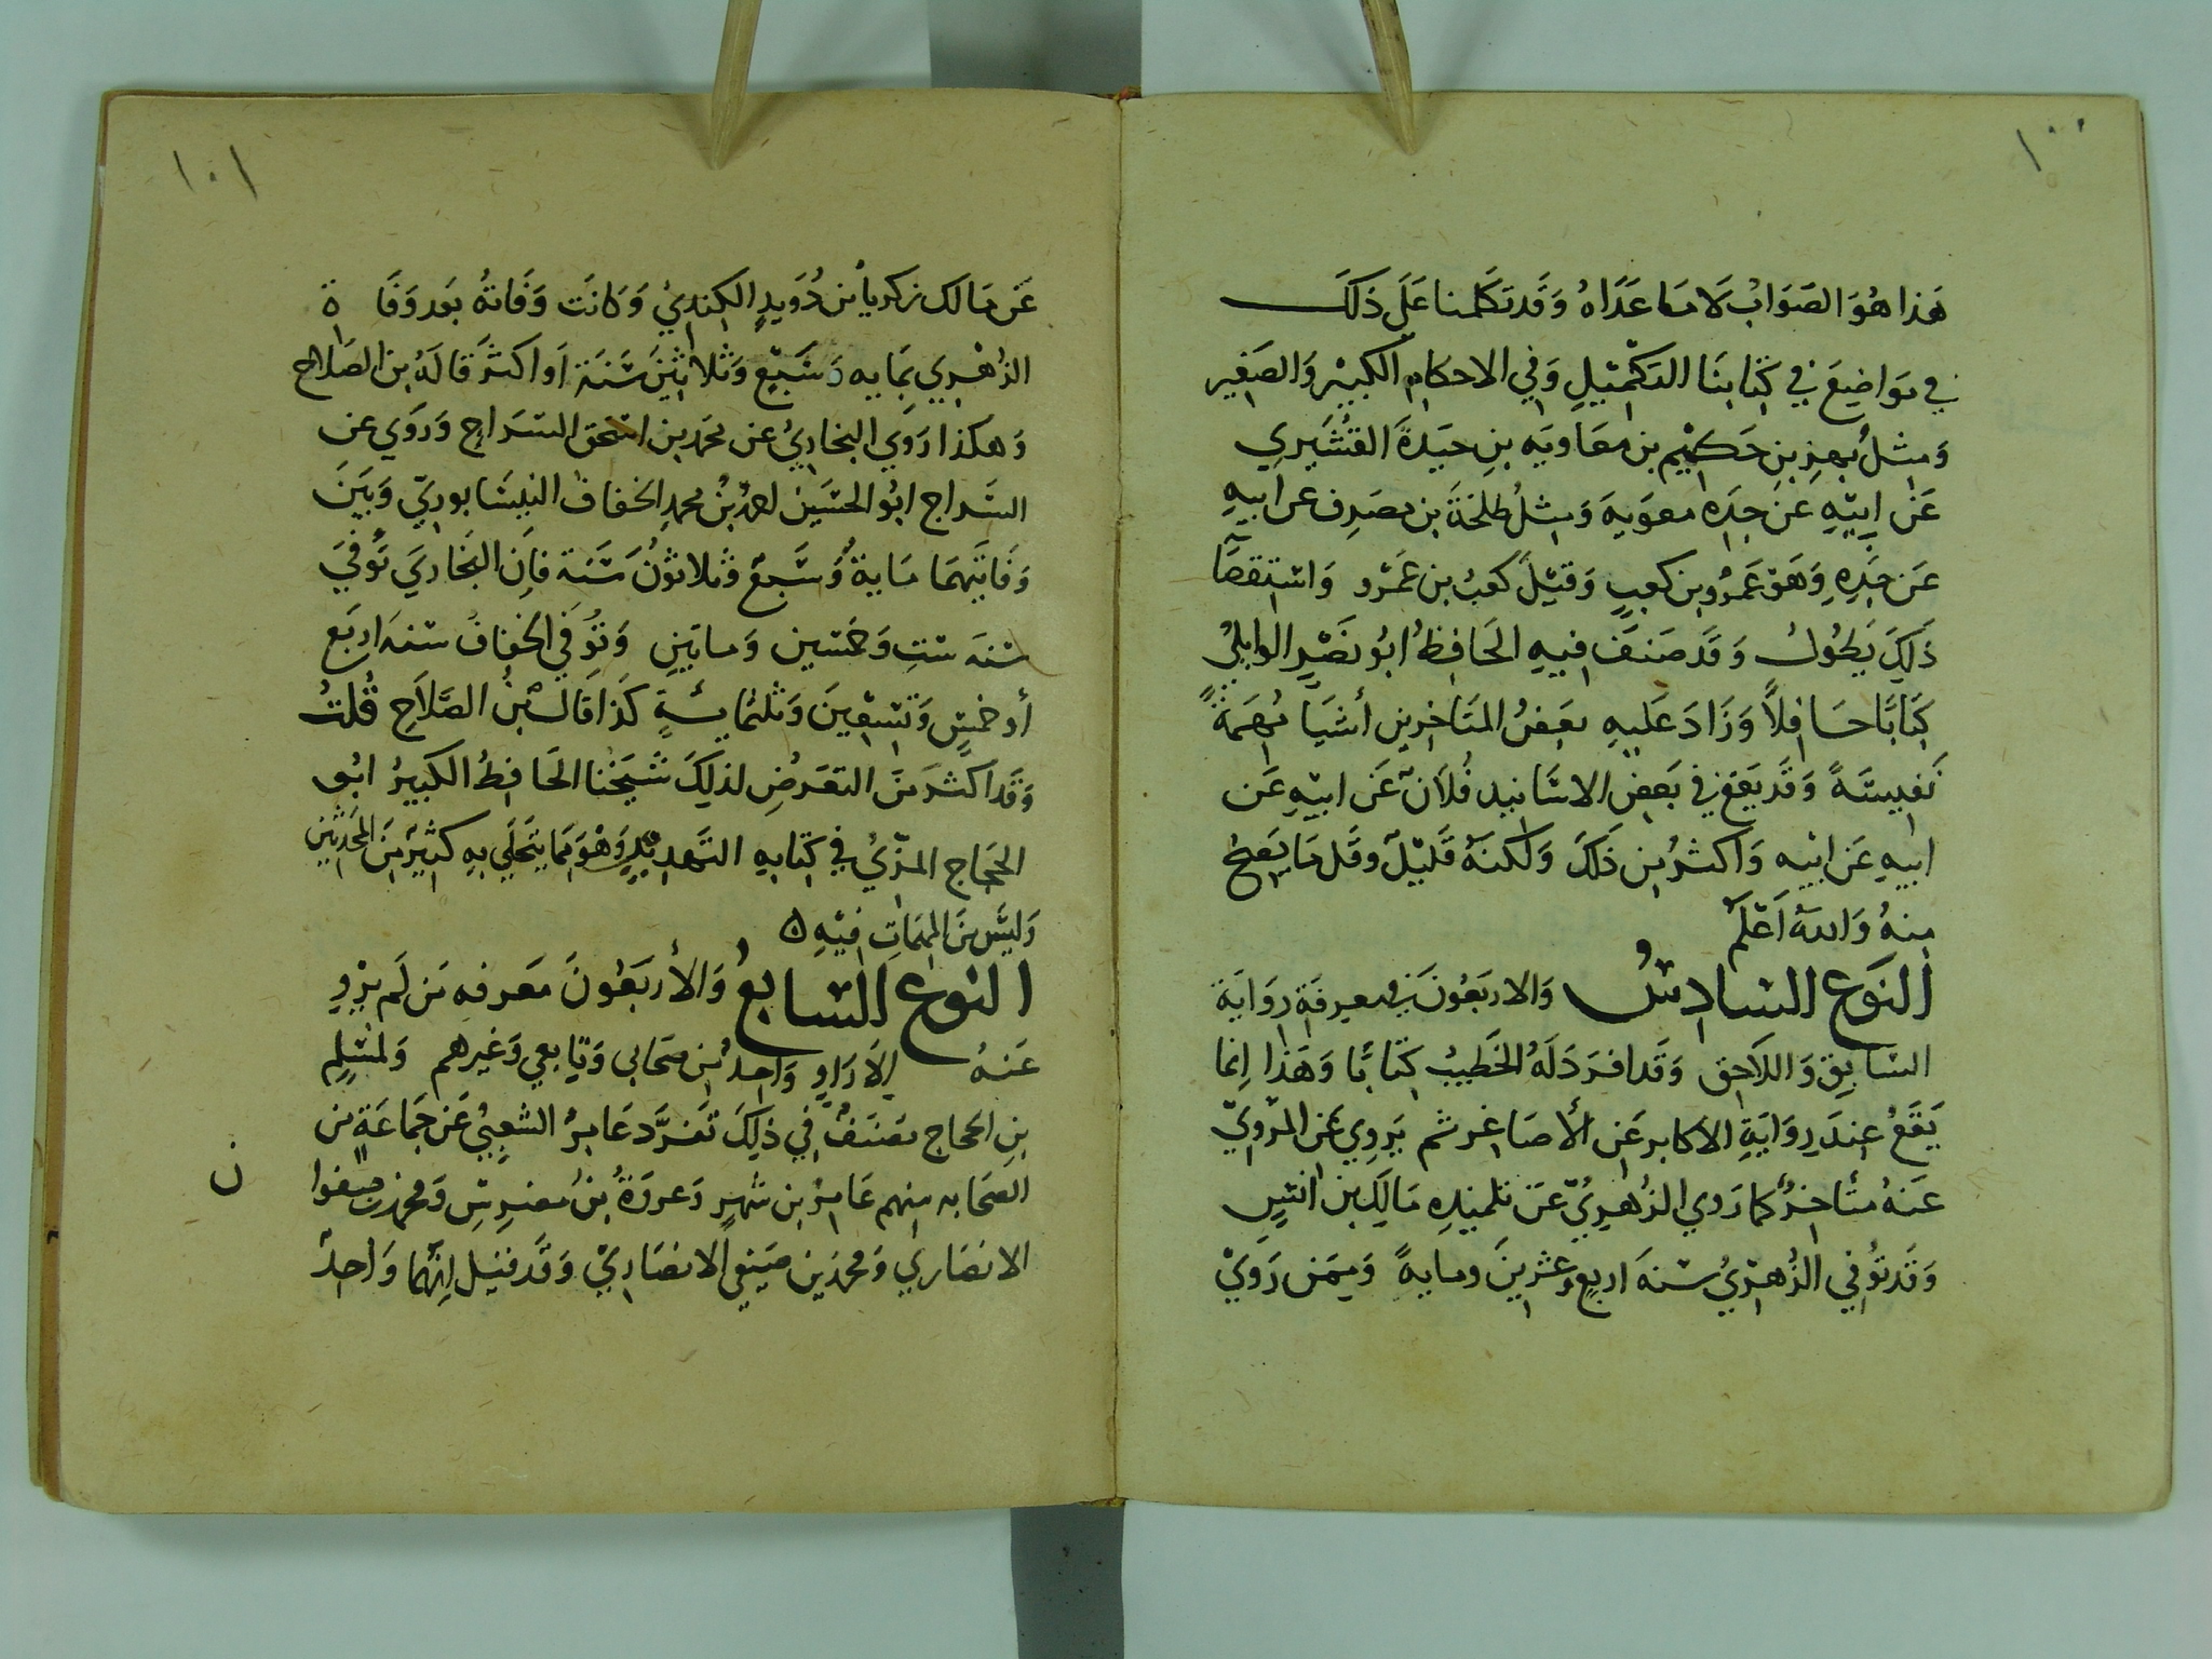 ١٠٠
هَذا هُوَ الصَوَابُ لَا مَا عَدَاهُ وَقَد تَكَلمنا عَلَى ذلكَ
في مَوَاضِعَ في كِتَابِنَا التكْمِيْلِ وَفي الاحكامِ الكبِيْر وَالصَغِير
وَمِثلُ بَهزِ بنِ حَكِيْم بن معَاويَه بنِ حَيدةَ القُشَيرِي
عَن ابِيْهِ عَن جدِه معَويهَ وَمثلُ طلحَةَ بن مصَرِف عن ابيهِ
عَن جَدِهِ وَهوَ عَمرُو بن كعبٍ وَقيْلَ كعبُ بن عَمْرو وَاستِقصَآ
ذَلِكَ يَطُولُ وَقَد صَنفَ فيهِ الحَافِظُ ابُو نَصْرٍ الوابليُ
كِتَابًا حَافِلاً وَزَادَ عَليهِ بعَضُ المتَاخِرين أشيَا مُهِمَةً
نَفيسَةً وَقَد يَقع في بَعضِ الاسَانيد فُلاَنٌ عَن ابيْهِ عَن
ابيهِ عَن ابيْه وَاكثرُ من ذَلكَ وَلكنهُ قَليْلٌ وقَل مَا يَصِحُ
مِنهُ وَاللهُ اَعْلَمُ
النَوع السَادِسُ وَالاربَعُونَ في معرِفَةِ رِوَايَة
السَابِق وَاللَاحِق وَقَد افرَدَ لَهُ الخَطيبُ كِتَابًا وَهَذا اِنما
يَقَعُ عِندَ رِوَايَةِ الاكابر عَن الأصَاغر ثم يَروِي عَن المَرْوِيّ
عَنهُ مُتأخِرٌ كما رَوي الزُهرِيُّ عَن تلميْذِهِ مَالِكِ بن انسٍ
وَقَد تُوُفي الزُهرِيُ سَنهَ اربعٍ وعشرينَ ومايهً وَمِمَن رَوَيْ
١٠١
عَن مَالك زكريا بن دُوَيدٍ الكِنديُ وَكانَت وَفَاتهُ بَعد وَفَاة
الزُهْرِي بِمايه وَسَبْعٍ وَثلاثِيْنَ سَنَة اَو اكثرَ قَالَهُ بن الصَلاح
وَهكذا رَوَي البخاريُ عن محمَد بن اسحق السَراج وَرَوَي عن
السَراج ابُو الحسَين احمدُ بنُ محمدٍ الخفافُ النيسَابوريّ وَبَيَن
وَفَاتَيهمَا مَايةٌ وَسَبعٌ وثلاثوُنَ سَنة فاِن البُخَاريَ تُوُفيَ
سَنهَ ستٍ وَخمسين وَمايتينِ وَتُوُفي الخفافُ سَنهَ اربَع
أو خمسٍ وَتسْعِينَ وَثلثمايَةٍ كَذا قَالَ بنُ الصَّلاَحِ قُلتُ
وَقَد اكثرَ مَن التعَرضِ لذلِكَ شيَخنا الحَافِظُ الكبيرُ ابُو
الحَجَاج المزّيُ في كِتابِهِ التَهذِيْبِ وَهْوَ مَما يَتحَلَي بِهِ كَثِيْرٌ مِنَ المحَدثينَ
وَليسَ مِنَ المهِمَاتِ فِيْهِ ٥
النَوع السَابعُ وَالأربَعُونَ مَعرفهِ مَن لَم يَرْوِ
عَنهُ إلاَ رَاوٍ وَاحِدٌ مِن صَحَابي وَتَابعي وَغيرهم وَلمُسْلِمِ
بنِ الحجاج مصَنفٌ في ذَلِكَ تَفَرَّدَ عَامِرُ الشعبِيُ عَن جَمَاعَةٍ من
الصَحَابه منهم عَامرُ بن شهرٍ وَعروَةُ بنُ مُضَرِسٍ وَمحمد بن صفوا ن
الانصَاري وَمحمدُ بن صَيْفي الانصَارِيْ وَقَد قيل اِنهُما وَاحدٌ